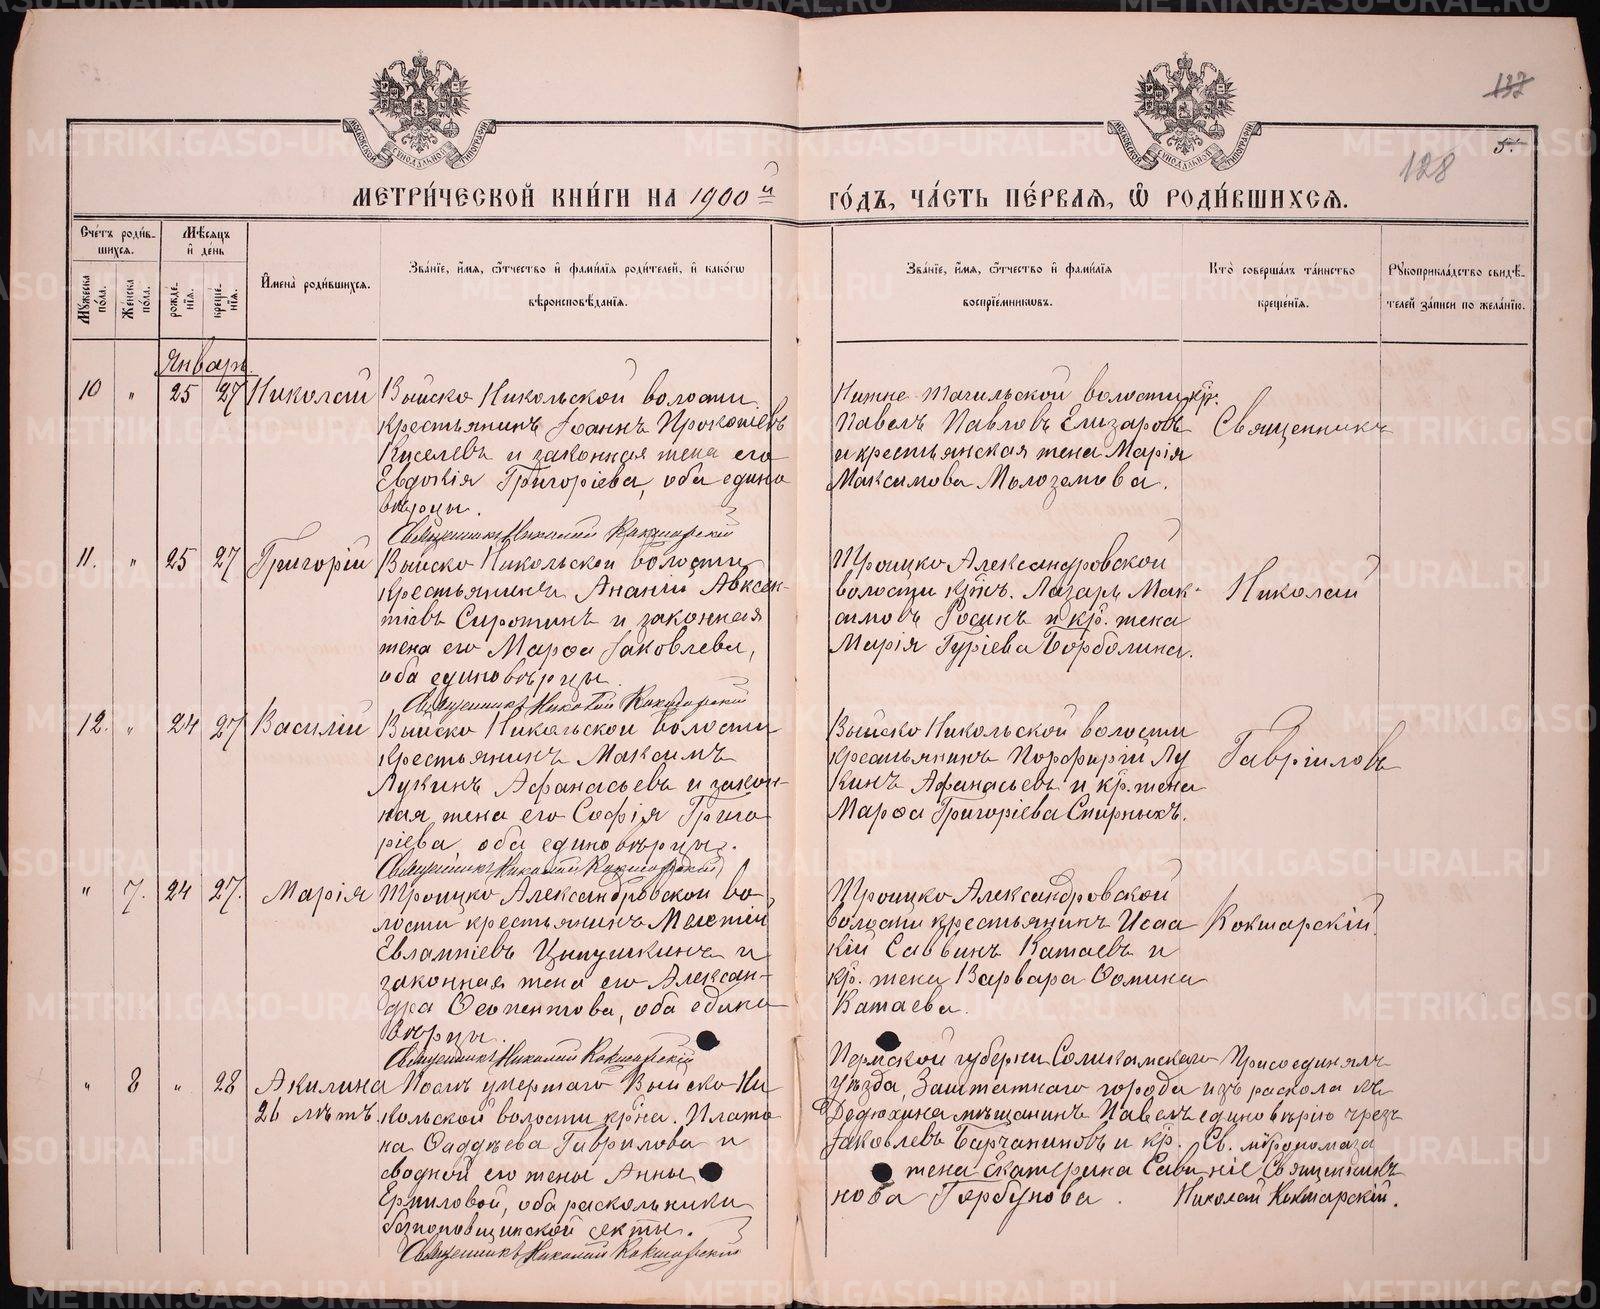 137
5.
128
МЕТРИ́ЧЕСКОЙ КНИ́ГИ НА 1900й ГО́ДЪ, ЧА́СТЬ ПЕ́РВАЯ, Ѡ РОДИ́ВШИХСЯ.
Сче́тъ роди́в-
шихся.
Мѣ́сяцъ
и҆ де́нь
Му́жеска
по́ла.
Же́нска
по́ла.
рожде-
нїя.
креще-
нїя.
И҆мена̀ роди́вшихся.
Зва́нїе, и҆́мя, ѻ҆́тчество и҆ фами́лїя роди́телей, и҆ како́гѡ
вѣроисповѣ́данїя.
Зва́нїе, и҆́мя, ѻ҆́тчество и҆ фами́лїя
воспрїе́мникѡвъ.
Кто̀ соверша́лъ та́инство
креще́нїя.
Рꙋкоприкла́дство свидѣ́-
телей за́писи по жела́нїю.
Январь
10 " 25 27 Николай
Выйско Никольской волости
крестьянинъ Іоаннъ Прокопіевъ
Киселевъ и законная жена его
Евдокія Григоріева, оба едино
вѣрцы.
Священникъ Николай Кокшарскій
Нижне Тагильской волости кр.
Павелъ Павловъ Елизаровъ
и крестьянская жена Марія
Максимова Молоземова.
Священникъ
11. " 25 27 Григорій
Выйско Никольской волости
крестьянинъ Ананій Авксен-
тіевъ Сиротинъ и законная
жена его Марѳа Іаковлева,
оба единовѣрцы.
Священникъ Николай Кокшарскій
Троицко Александровской
волости кр͠нъ. Лазарь Мак-
симовъ Росинъ и кр. жена
Марія Гуріева Борболина.
Николай
12. " 24 27 Василій
Выйско Никольской волости
крестьянинъ Максимъ
Лукинъ Афанасьевъ и закон-
ная жена его Софія Григо
ріева, оба единовѣрцы.
Священникъ Николай Кокшарскій
Выйско Никольской волости
крестьянинъ Порфирій Лу
кинъ Афанасьевъ и кр. жена
Марѳа Григоріева Смирныхъ.
Гавріиловъ
" 7. 24 27. Марія
Троицко Александровской во-
лости крестьянинъ Мелетій
Евлампіевъ Ципушкинъ и
законная жена его Алексан-
дра Ѳеопентова, оба едино
вѣрцы.
Священникъ Николай Кокшарскій
Троицко Александровской
волости крестьянинъ Исаа
кій Саввинъ Катаевъ и
кр. жена Варвара Ѳомина
Катаева.
Кокшарскій
" 8 " 28 Акилина
26 лѣтъ
Послѣ умершаго Выйско Ни
кольской волости кр͠на. Плато
на Ѳаддѣева Гаврилова и
сводной его жены Анны
Ермиловой, оба раскольники
безпоповщинской секты.
Священникъ Николай Кокшарскій
Пермской губерніи Соликамскаго
уѣзда, Заштатнаго города
Дедюхина мѣщанинъ Павелъ
Іаковлевъ Барчаниновъ и кр.
жена Екатерина Сави
нова Горбунова.
Присоединялъ
изъ раскола къ
единовѣрію чрезъ
Св. мѵропомаза
ніе Священникъ
Николай Кокшарскій.